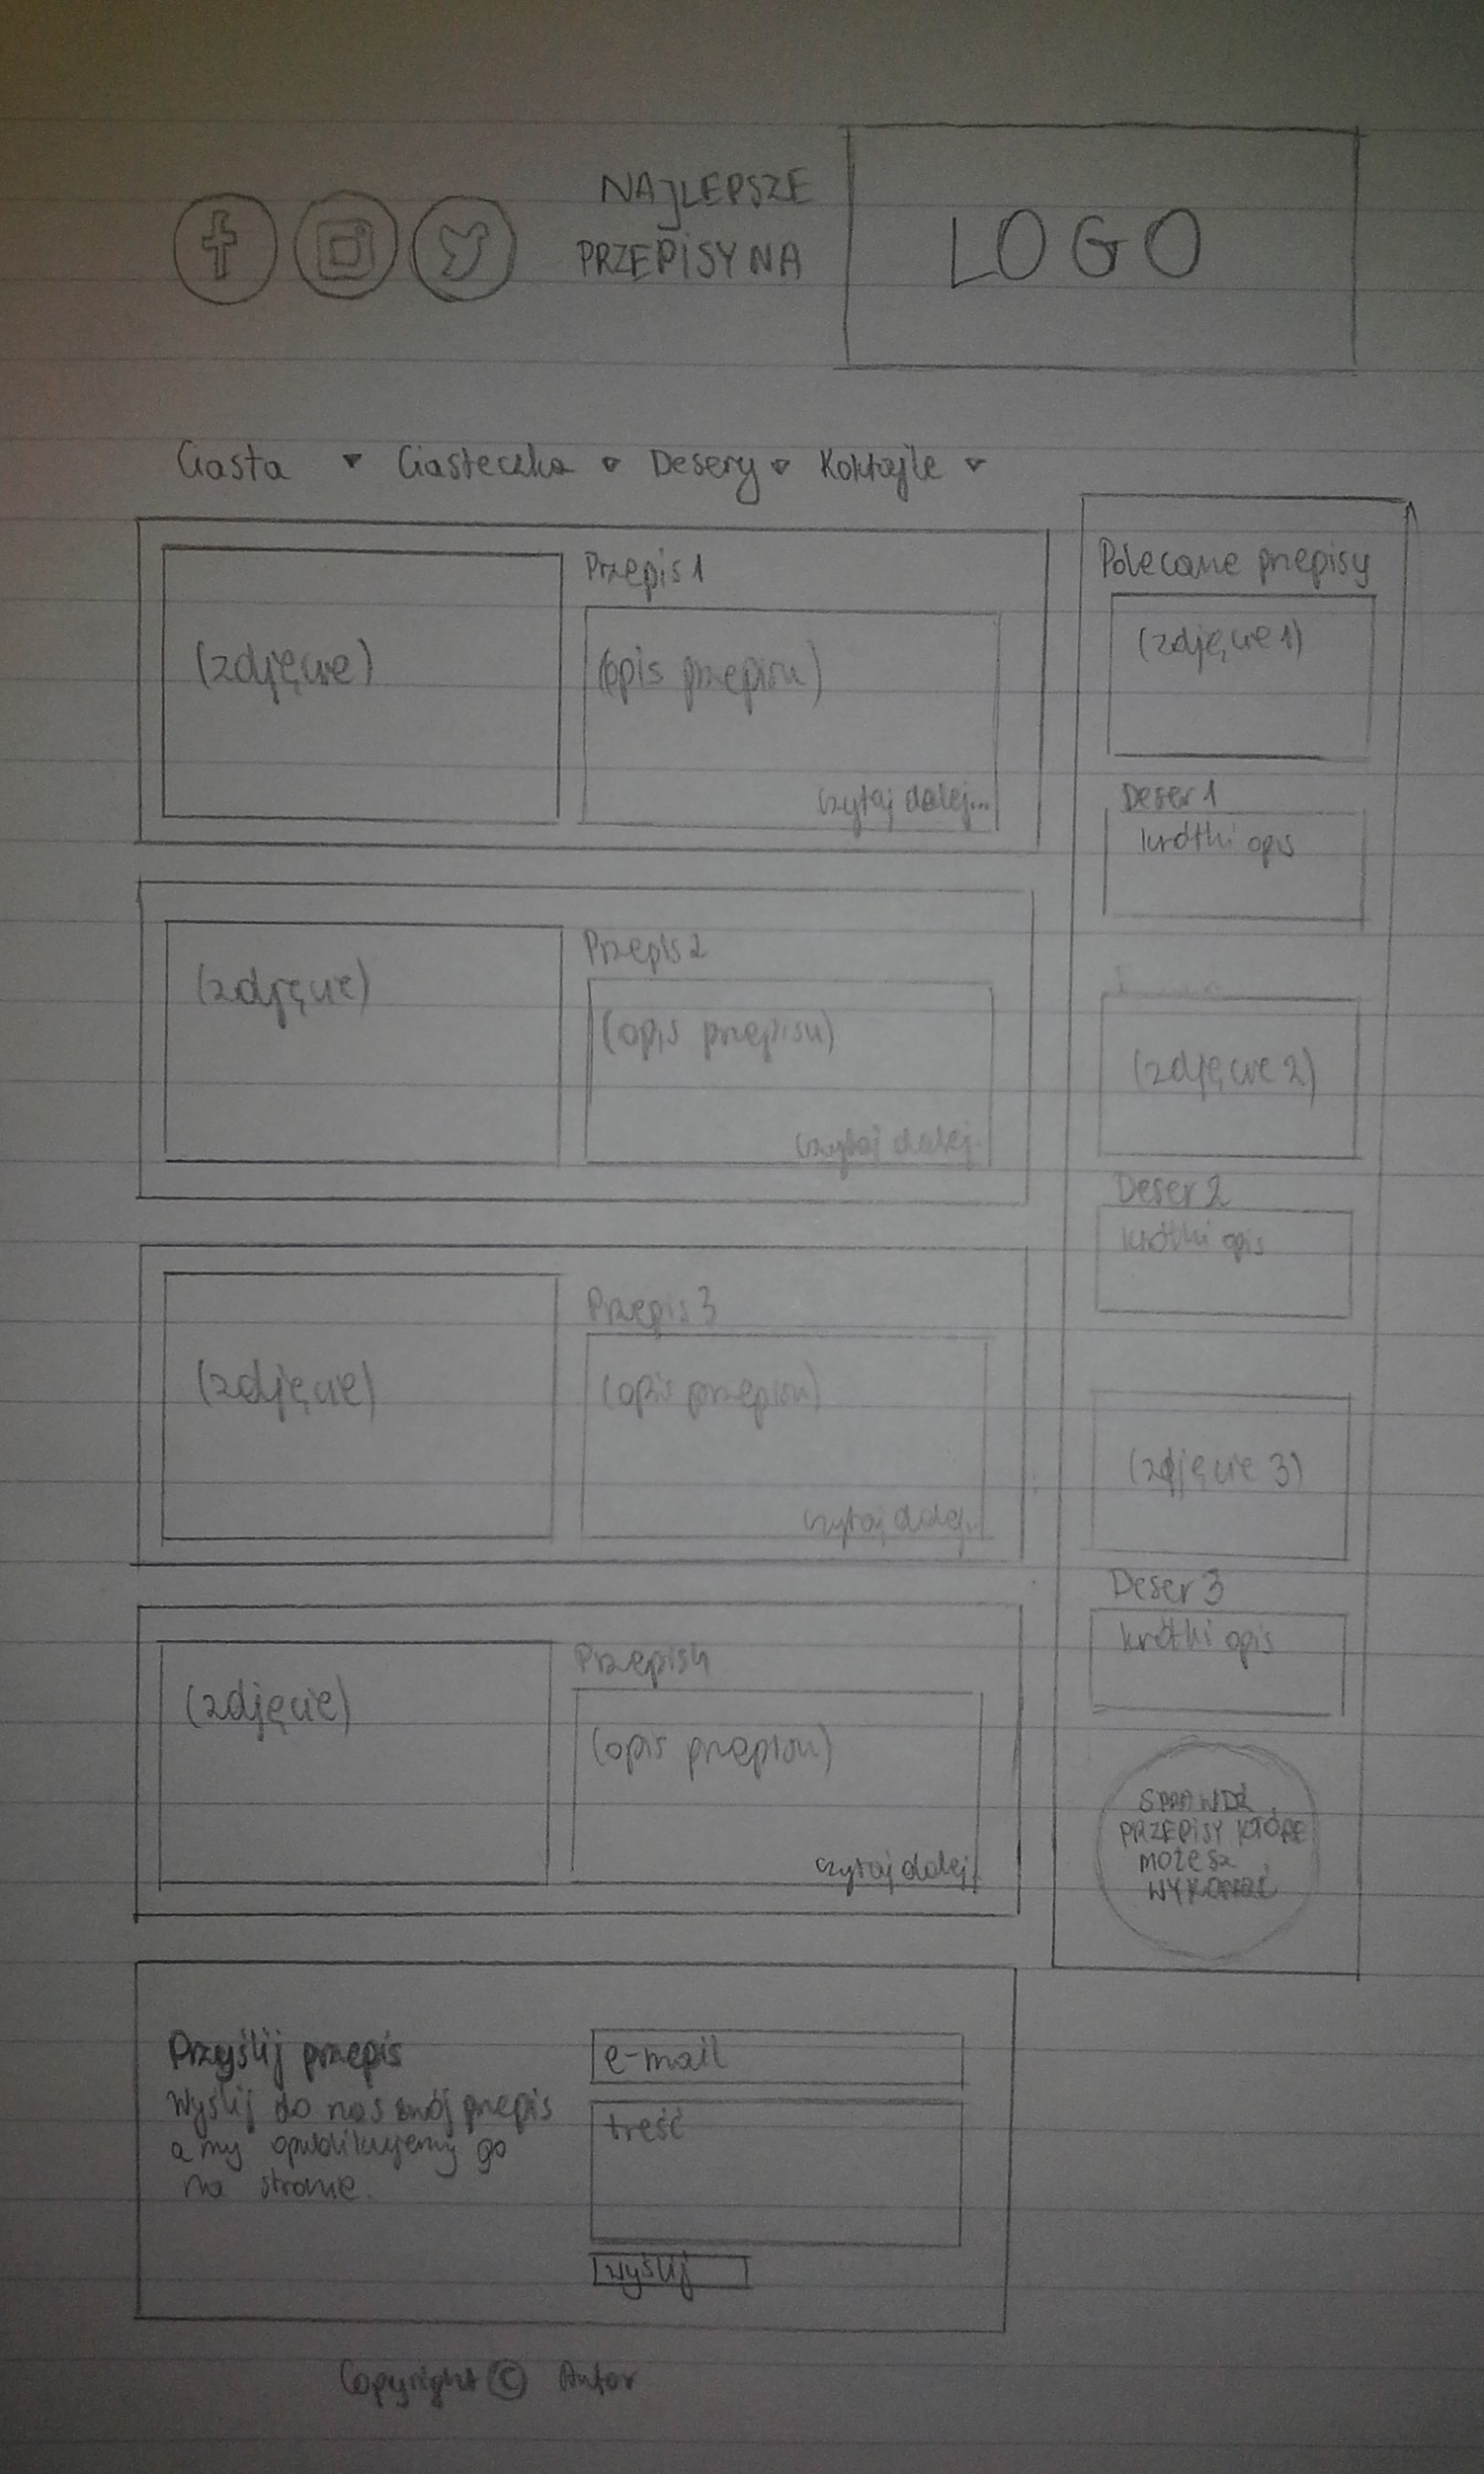 NAJLEPSZE
PRZEPISY NA
LOGO
Ciasta Ciasteczka Desery Koktajle
Przepis 1
(zdjęcie)
(opis przepisu)
czytaj dalej...
Przepis 2
(zdjęcie)
(opis przepisu)
czytaj dalej..
Przepis 3
(zdjęcie)
(opis przepisu)
czytaj dalej..
Przepis 4
(zdjęcie)
(opis przepisu)
czytaj dalej
Polecane przepisy
(zdjęcie 1)
Deser 1
krótki opis
(zdjęcie 2)
Deser 2
krótki opis
(zdjęcie 3)
Deser 3
krótki opis
SPRAWDŹ
PRZEPISY KTÓRE
MOŻESZ
WYKONAĆ
Przyślij przepis
Wyślij do nas swój przepis
a my opublikujemy go
na stronie.
e-mail
treść
wyślij
Copyright © Autor